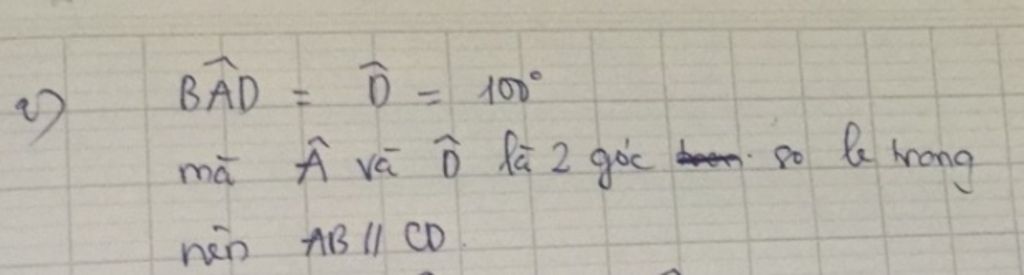 a) BÂD = D̂ = 100°
mà Â và D̂ là 2 góc so le trong
nên AB // CD.